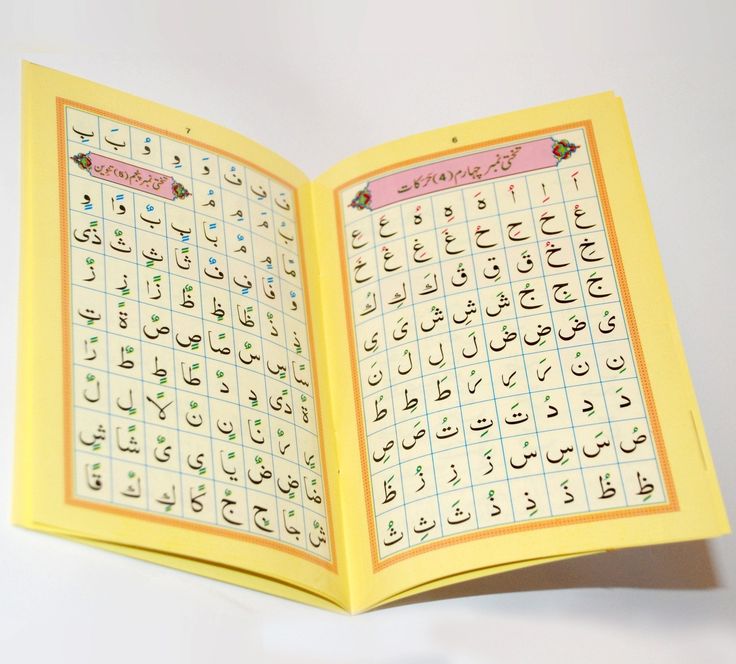 6
تختی نمبر چہارم (4) حرکات
اَ اِ اُ هَ هِ هُ عَ عِ
عُ حَ حِ حُ غَ غِ غُ خَ
خِ خُ قَ قِ قُ كَ كِ كُ
جَ جِ جُ شَ شِ شُ یَ یِ
یُ ضَ ضِ ضُ لَ لِ لُ نَ
نِ نُ رَ رِ رُ طَ طِ طُ
دَ دِ دُ تَ تِ تُ صَ صِ
صُ سَ سِ سُ زَ زِ زُ ظَ
ظِ ظُ ذَ ذِ ذُ ثَ ثِ ثُ
7
فَ فِ فُ وَ وِ وُ بَ بِ
بُ مَ مِ مُ تختی نمبر پنجم (5) تنوین
مًا مٍ مٌ بًا بٍ بٌ وًا وٍ
وٌ فًا فٍ فٌ ثًا ثٍ ثٌ ذًی
ذٍ ذٌ ظًا ظٍ ظٌ زًا زٍ زٌ
سًا سٍ سٌ صًا صٍ صٌ ةً تٍ
ةٌ دًی دٍ دٌ طًا طٍ طٌ رًا
رٍ رٌ نًا نٍ نٌ لًا لٍ لٌ
ضًا ضٍ ضٌ یًا یٍ یٌ شًا شٍ
شٌ جًا جٍ جٌ كًا كٍ كٌ قًا